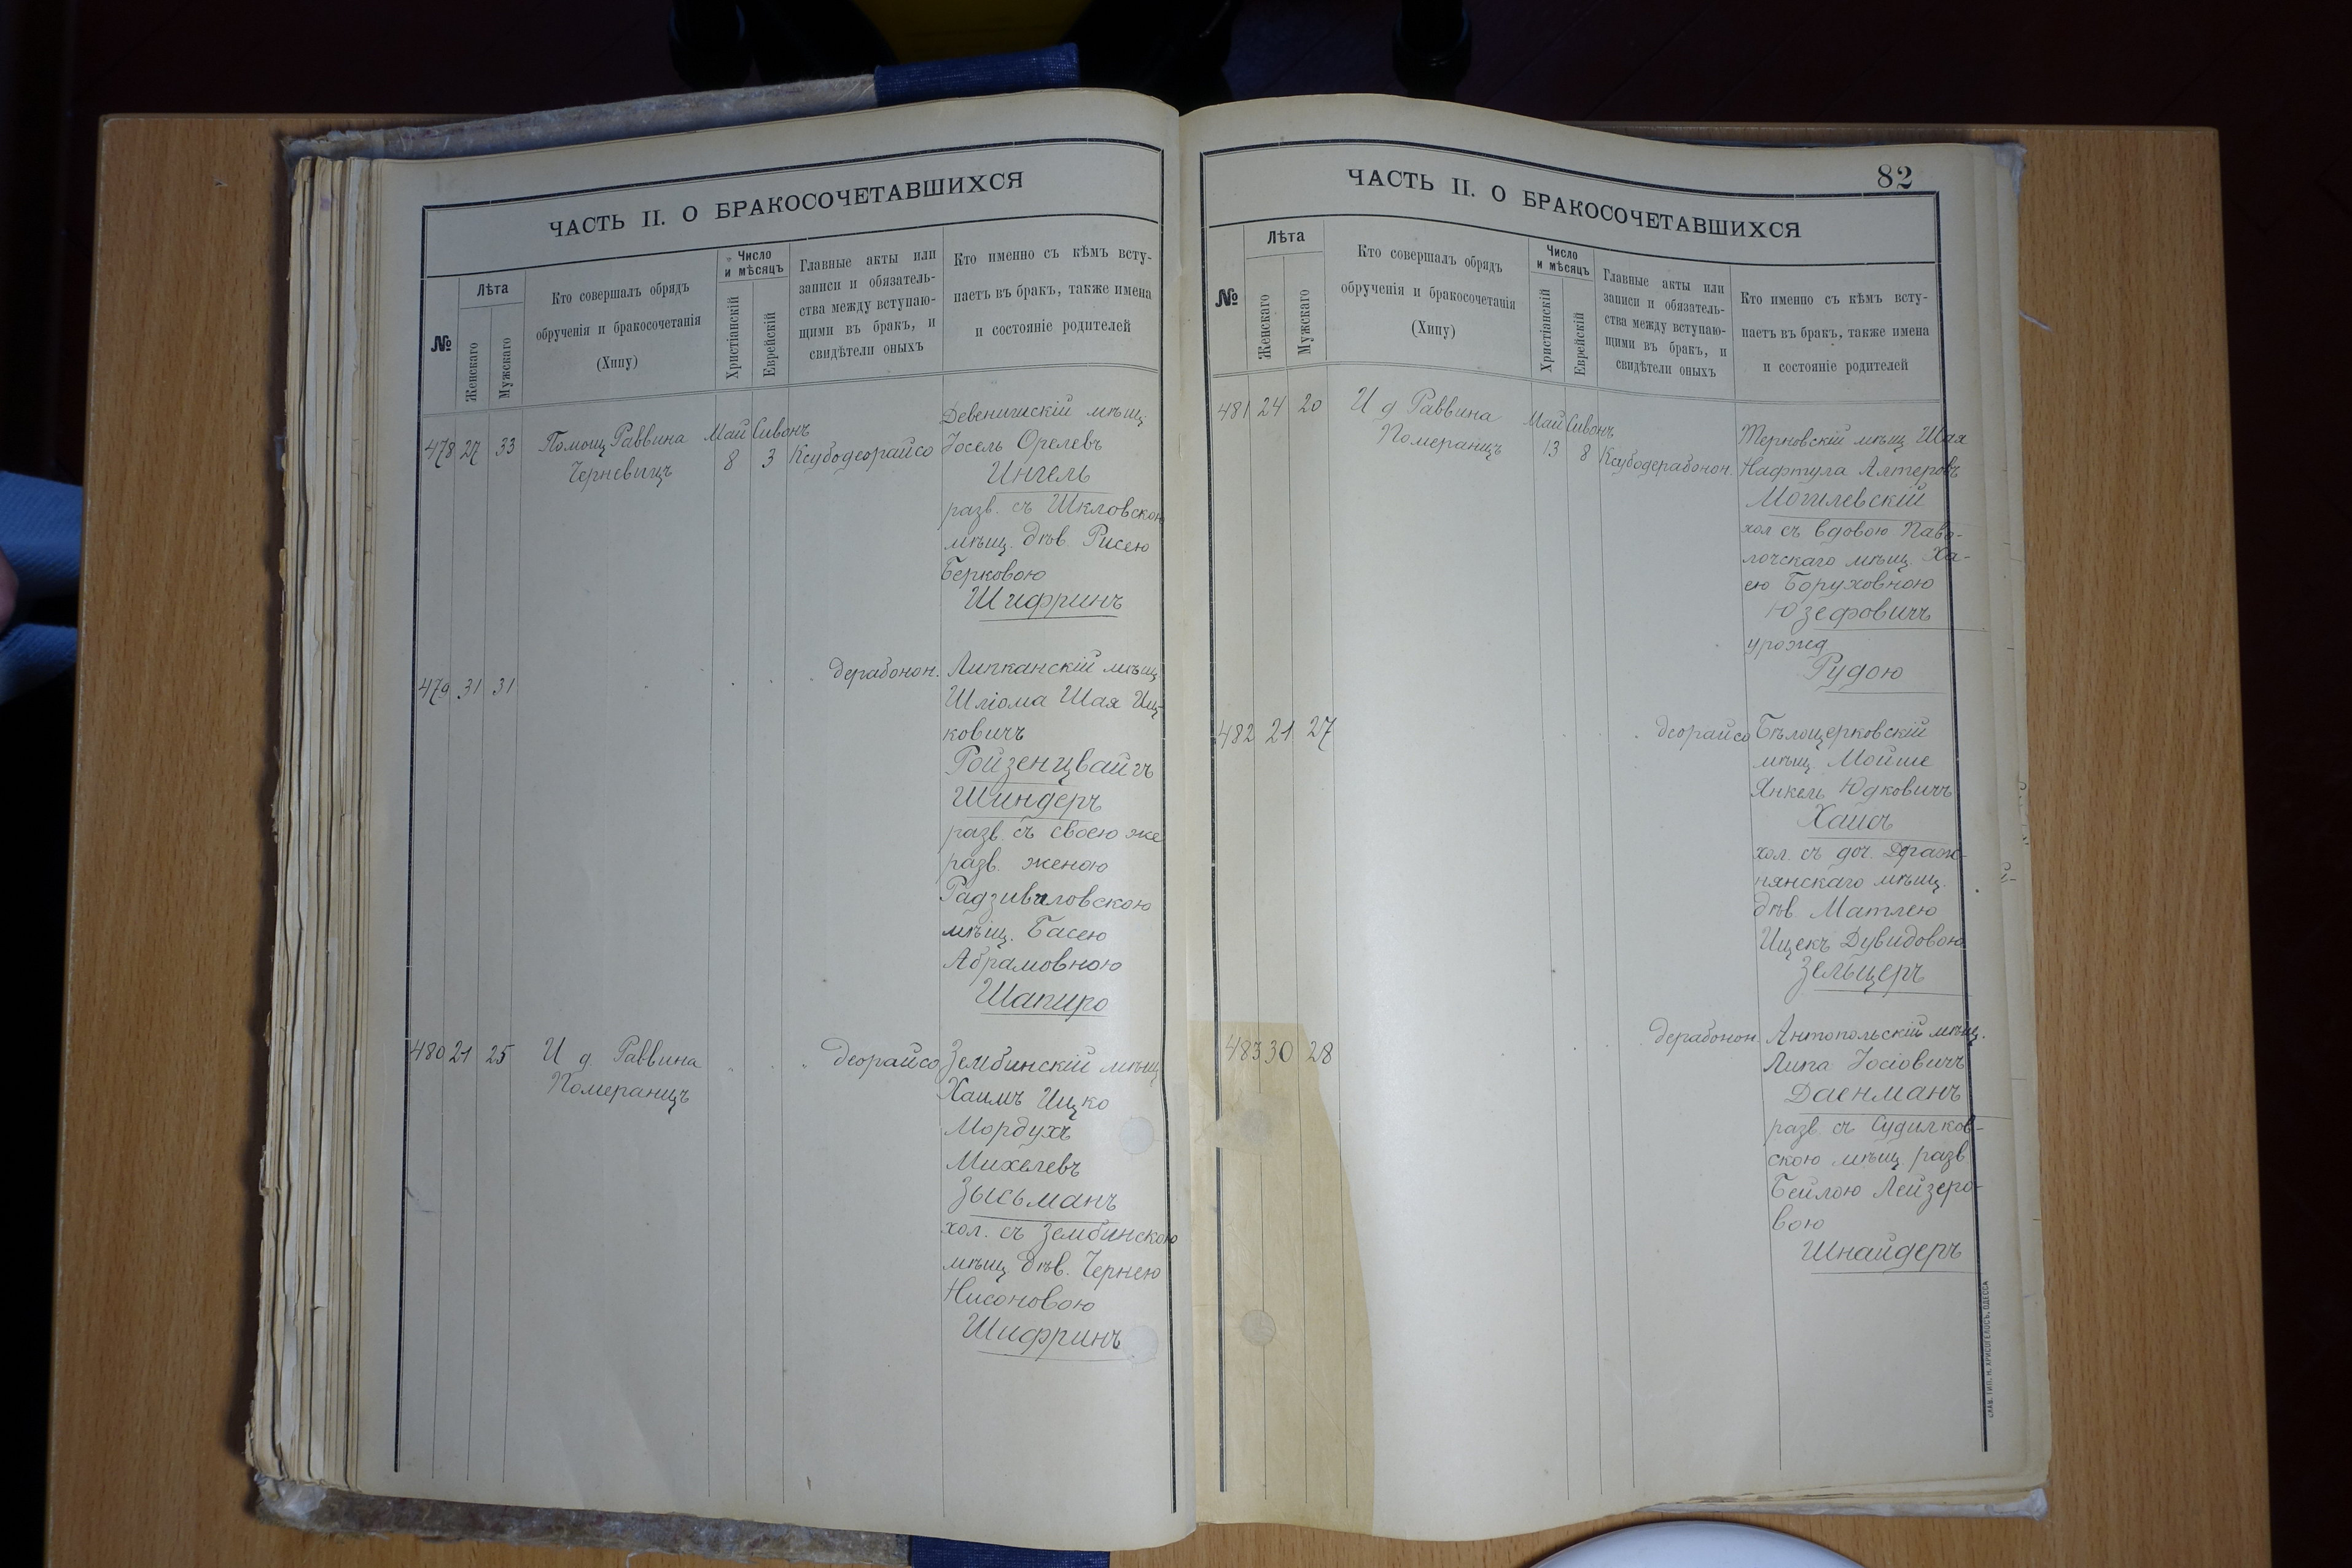 ЧАСТЬ II. О БРАКОСОЧЕТАВШИХСЯ
№
Лѣта
Женскаго
Мужскаго
Кто совершалъ обрядъ
обрученія и бракосочетанія
(Хипу)
Число
и мѣсяцъ
Христіанскій
Еврейскій
Главные акты или
записи и обязатель-
ства между вступаю-
щими въ бракъ, и
свидѣтели оныхъ
Кто именно съ кѣмъ всту-
паетъ въ бракъ, также имена
и состояніе родителей
478 27 33
Помощ Раввина
Черневицъ
Май Сивонъ
8 3
Ксубодеорайсо
Девенишскій мѣщ.
Іосель Орелевъ
Ингель
разв. съ Шкловскою
мѣщ. дѣв. Рисею
Берковою
Шифринъ
479 31 31
дерабонон.
Липканскій мѣщ.
Шліома Шая Иц-
ковичъ
Ройзенцвайгъ
Шиндеръ
разв. съ своею же
разв. женою
Радзивиловскою
мѣщ. Басею
Абрамовною
Шапиро
480 21 25
И д. Раввина
Померанцъ
деорайсо
Зембинскій мѣщ
Хаимъ Ицко
Мордухъ
Михелевъ
Зысьманъ
хол. съ Зембинскою
мѣщ. дѣв. Чернею
Нисоновою
Шифринъ
82
ЧАСТЬ II. О БРАКОСОЧЕТАВШИХСЯ
№
Лѣта
Женскаго
Мужскаго
Кто совершалъ обрядъ
обрученія и бракосочетанія
(Хипу)
Число
и мѣсяцъ
Христіанскій
Еврейскій
Главные акты или
записи и обязатель-
ства между вступаю-
щими въ бракъ, и
свидѣтели оныхъ
Кто именно съ кѣмъ всту-
паетъ въ бракъ, также имена
и состояніе родителей
481 24 20
И д Раввина
Померанцъ
Май Сивонъ
13 8
Ксубодерабонон.
Терновскій мѣщ Шая
Нафтула Алтеровъ
Могилевскій
хол съ вдовою Паво-
лочскаго мѣщ. Ха-
ею Боруховною
Юзефовичъ
урожд
Рудою
482 21 27
деорайсо
Бѣлоцерковскій
мѣщ. Мойше
Янкель Юдковичъ
Хаисъ
хол. съ доч. Драж-
нянскаго мѣщ.
дѣв Матлею
Ицекъ Дувидовою
Зельцеръ
483 30 28
дерабонон.
Антопольскій мѣщ.
Липа Іосіовичъ
Даенманъ
разв. съ Судилков-
скою мѣщ разв
Бейлою Лейзеро-
вою
Шнайдеръ
СЛАВ. ТИП. Н. ХРИСОГЕЛОСЪ, ОДЕССА